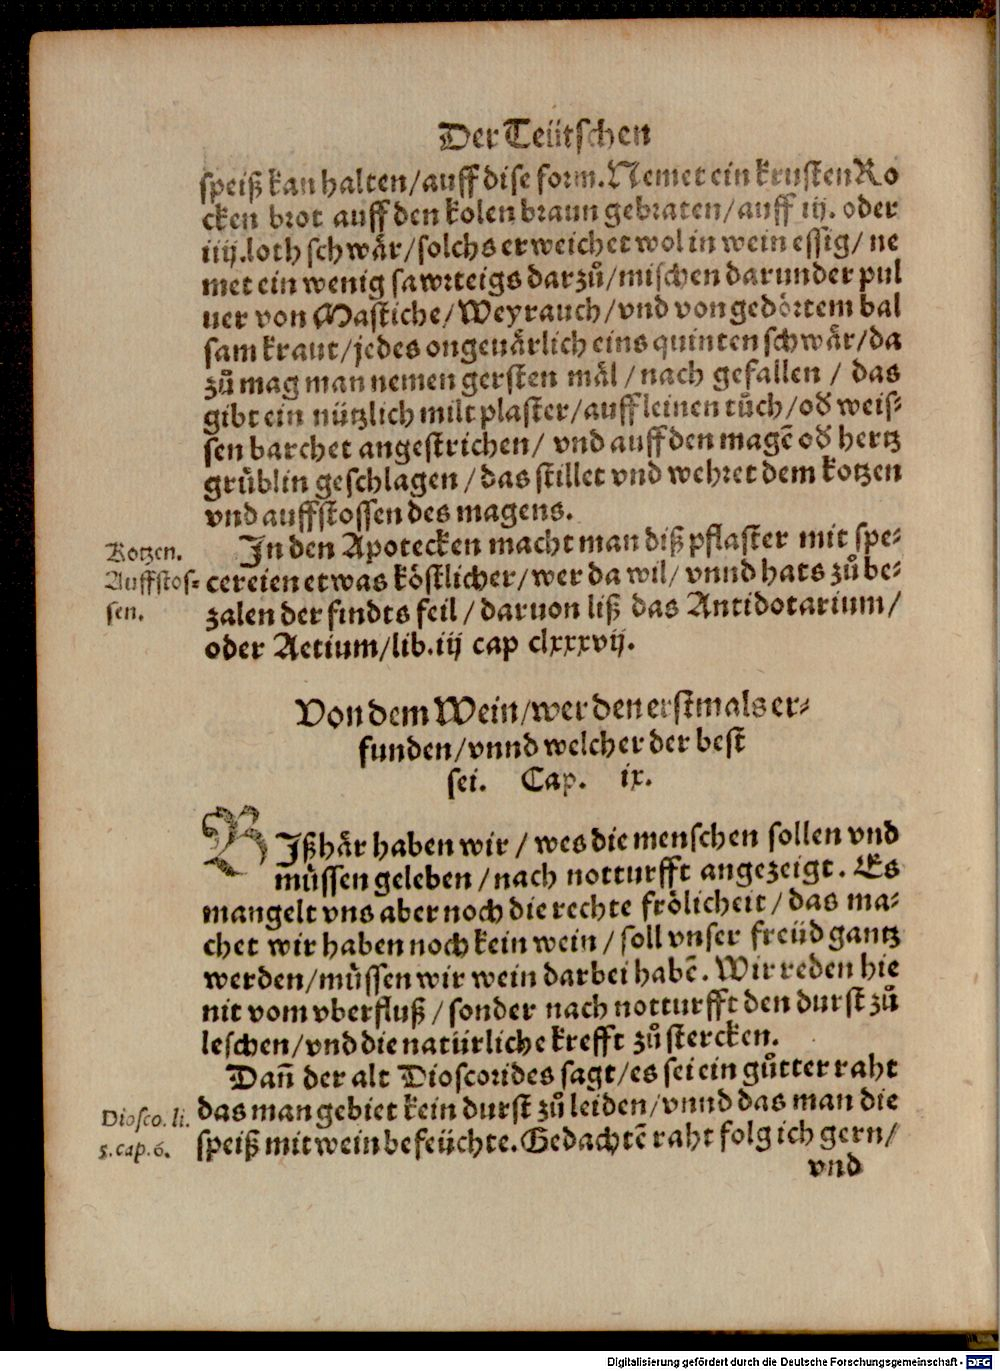 Der Teütschen
speiß kan halten/auff dise form. Nemet ein krusten Ro
cken brot auff den kolen braun gebraten/auff iij. oder
iiij.loth schwår/solchs erweichet wol in wein essig/ ne
met ein wenig sawrteigs darzů/mischen darunder pul
uer von Mastiche/Weyrauch/vnd von gedörtem bal
sam kraut/jedes ongeuårlich eins quinten schwår/da
zů mag man nemen gersten mål /nach gefallen / das
gibt ein nützlich milt plaster/auff leinen tůch/od weis-
sen barchet angestrichen/ vnd auff den magē od hertz
grüblin geschlagen /das stillet vnd wehret dem kotzen
vnd auffstossen des magens.
Kotzen.
Auffstos-
sen.
In den Apotecken macht man diß pflaster mit spe-
cereien etwas köstlicher/wer da wil/ vnnd hats zů be-
zalen der findts feil / daruon liß das Antidotarium/
oder Aetium/lib.iij cap clxxxvij.
Von dem Wein/wer den erstmals er-
funden/vnnd welcher der best
sei. Cap. ix.
BIßhår haben wir / wes die menschen sollen vnd
müssen geleben /nach notturfft angezeigt. Es
mangelt vns aber noch die rechte frölicheit / das ma-
chet wir haben noch kein wein / soll vnser freüd gantz
werden/müssen wir wein darbei habē. Wir reden hie
nit vom vberfluß / sonder nach notturfft den durst zů
leschen/vnd die natürliche krefft zů stercken.
Dañ der alt Dioscorides sagt/es sei ein gůtter raht
das man gebiet kein durst zů leiden/vnnd das man die
speiß mit wein befeüchte. Gedachtē raht folg ich gern/
Diosco. li.
5. cap. 6.
vnd
Digitalisierung gefördert durch die Deutsche Forschungsgemeinschaft - DFG